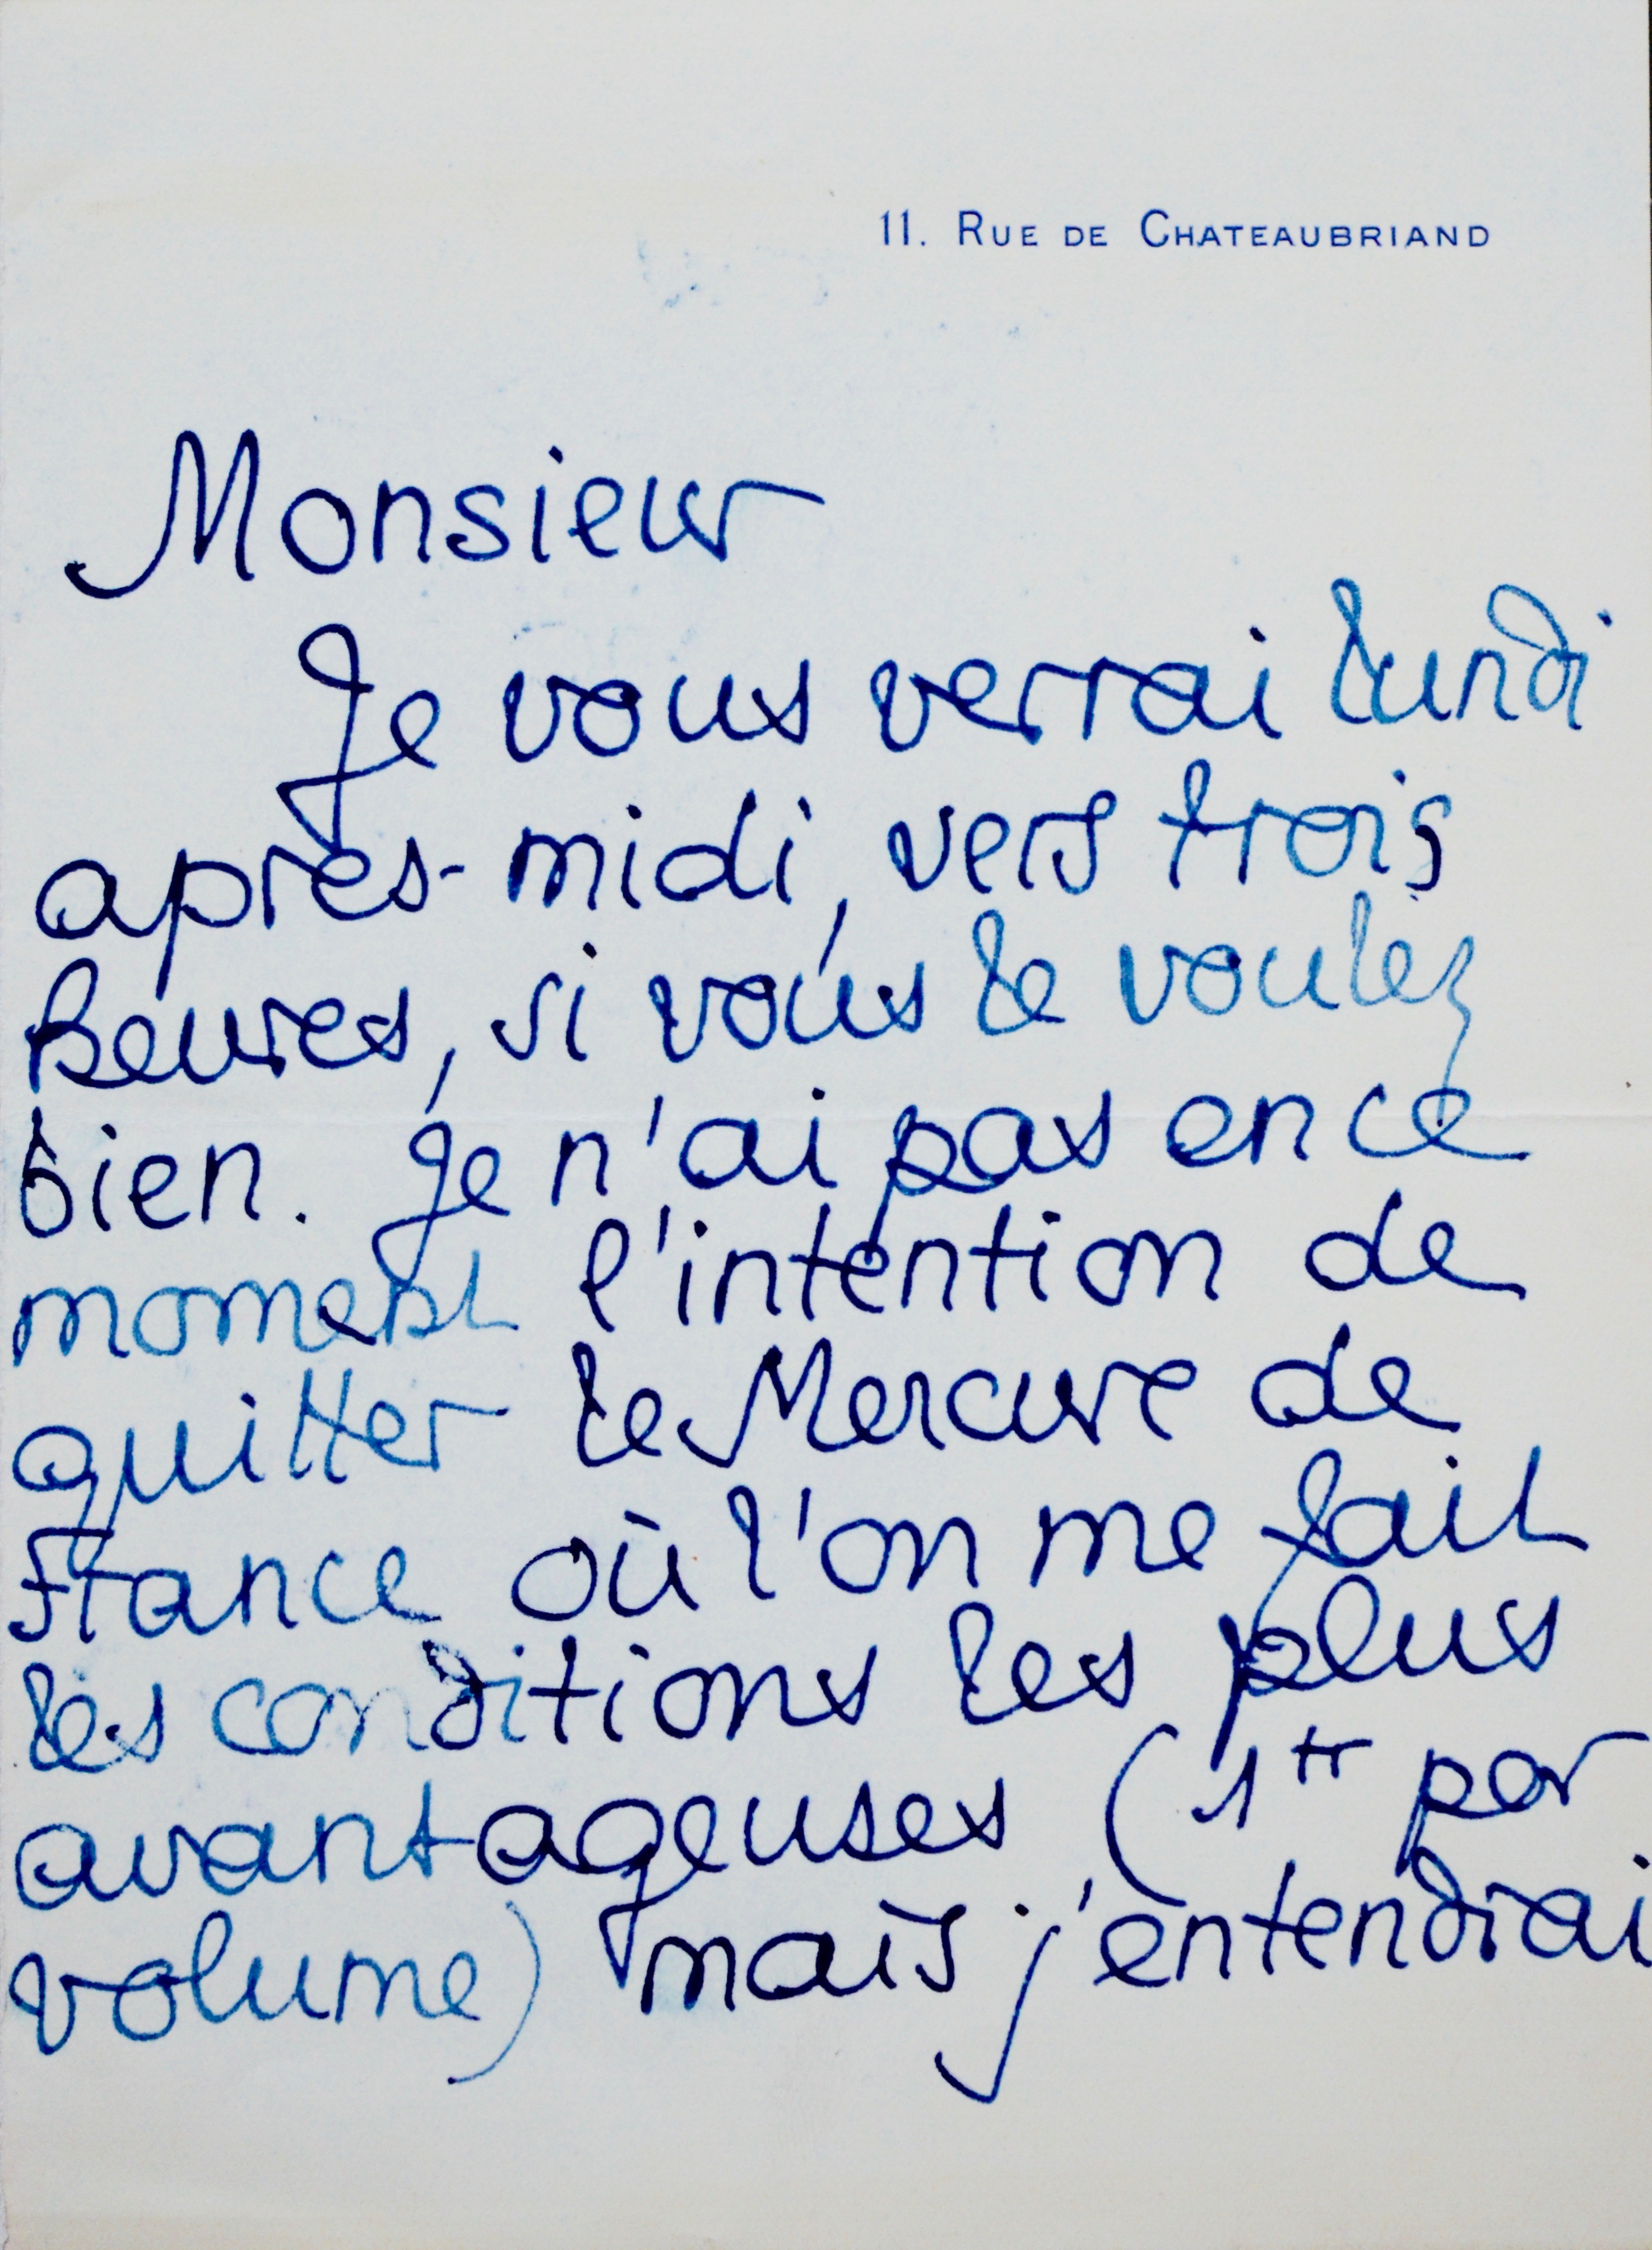 11. Rue de Chateaubriand
Monsieur
Je vous verrai lundi
après-midi, vers trois
heures, si vous le voulez
bien. Je n'ai pas en ce
moment l'intention de
quitter le Mercure de
France où l'on me fait
les conditions les plus
avantageuses (1 fr par
volume) mais j'entendrai